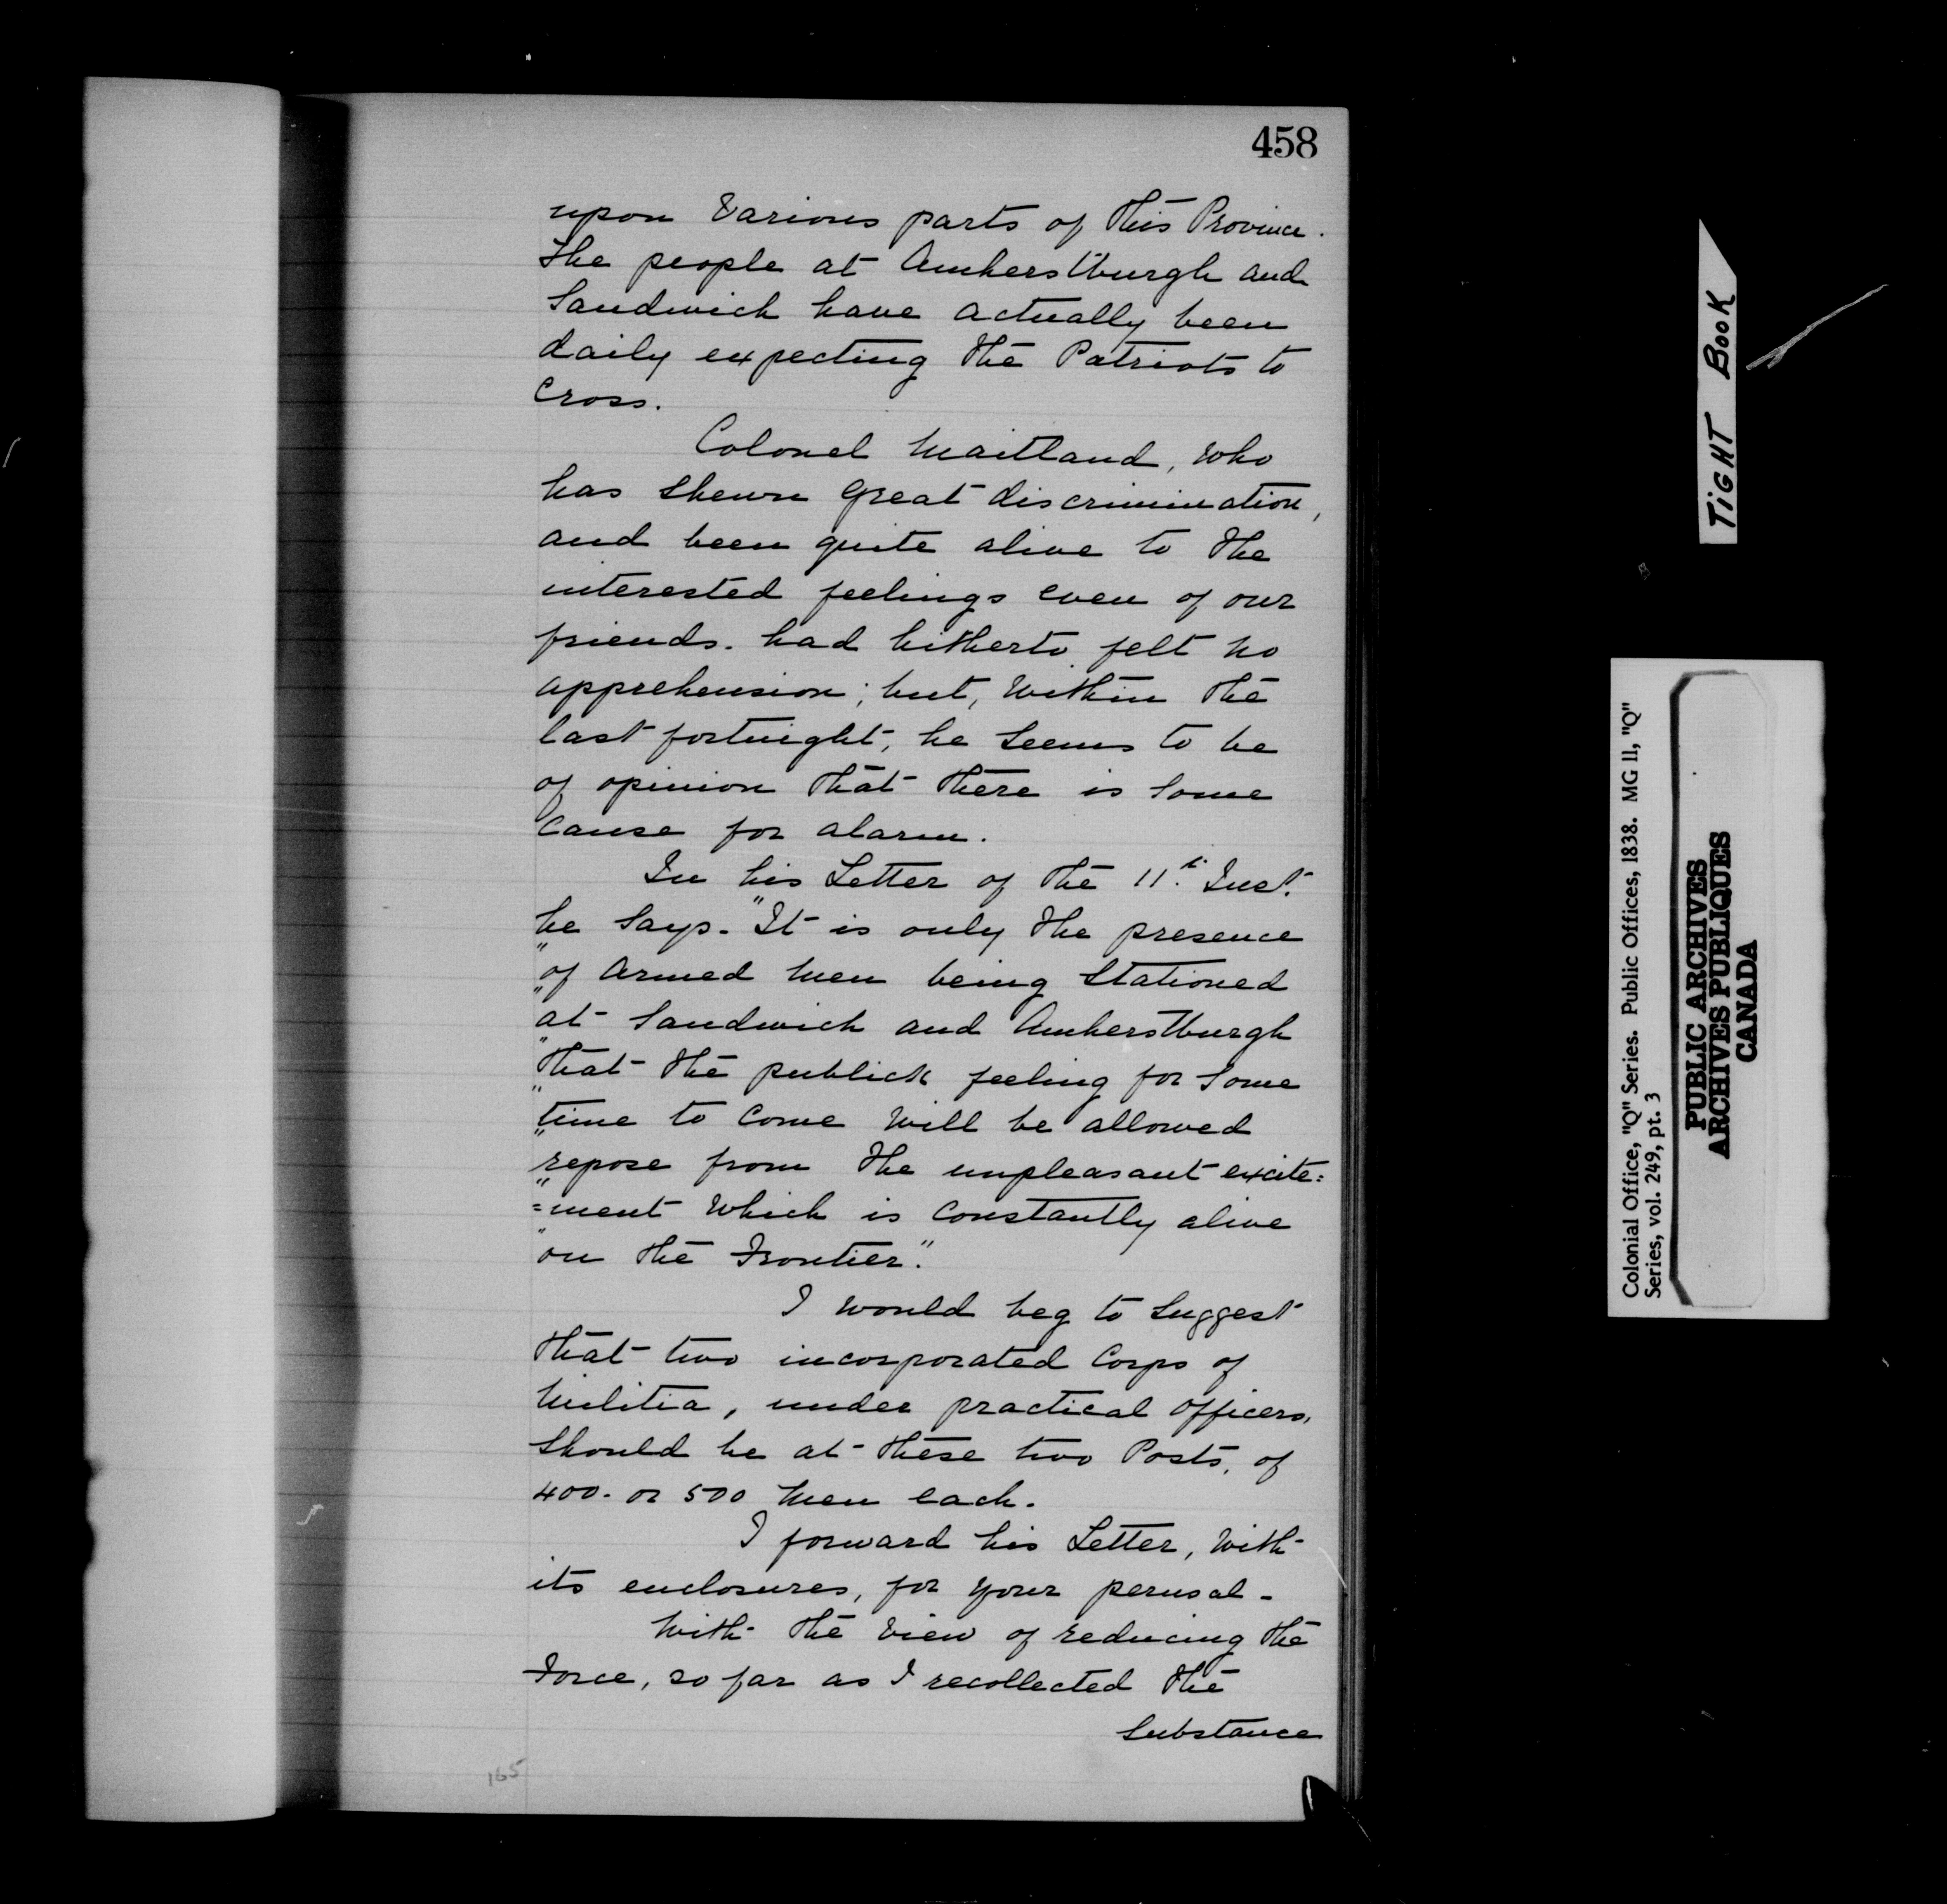 458
upon various parts of this Province.
The people at Amherstburgh and
Sandwich have actually been
daily expecting the Patriots to
cross.
Colonel Maitland, who
has shewn great discrimination,
and been quite alive to the
interested feelings even of our
friends. had hitherto felt no
apprehension; but, within the
last fortnight, he seems to be
of opinion that there is some
cause for alarm.
In his Letter of the 11th. Inst.
he says. "It is only the presence
"of armed men being stationed
"at Sandwich and Amherstburgh
"that the publick feeling for some
"time to come will be allowed
"repose from the unpleasant excite=
"=ment which is constantly alive
"on the Frontier."
I would beg to suggest
that two incorporated Corps of
Militia, under practical officers,
should be at these two Posts, of
400. or 500 men each.
I forward his Letter, with
its enclosures, for your perusal -
With the view of reducing the
Force, so far as I recollected the
substance
165
TIGHT BOOK
Colonial Office, "Q" Series. Public Offices, 1838. MG 11, "Q"
Series, vol. 249, pt. 3
PUBLIC ARCHIVES
ARCHIVES PUBLIQUES
CANADA